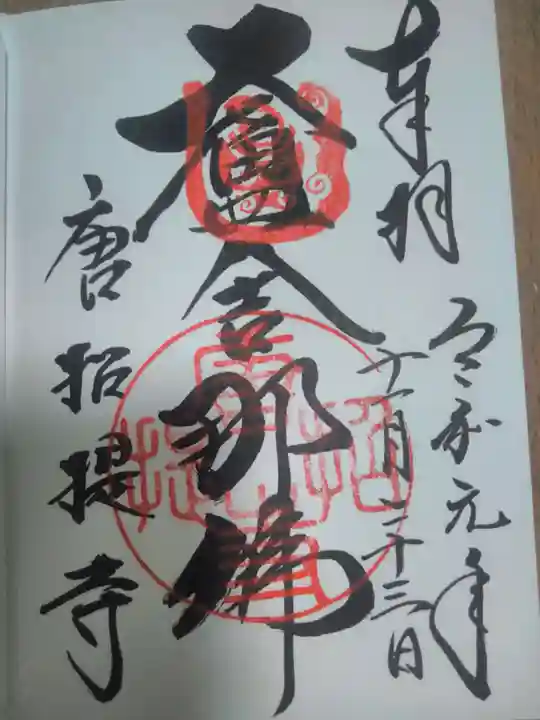 奉拝
令和元年
十一月二十三日
盧舎那佛
唐招提寺